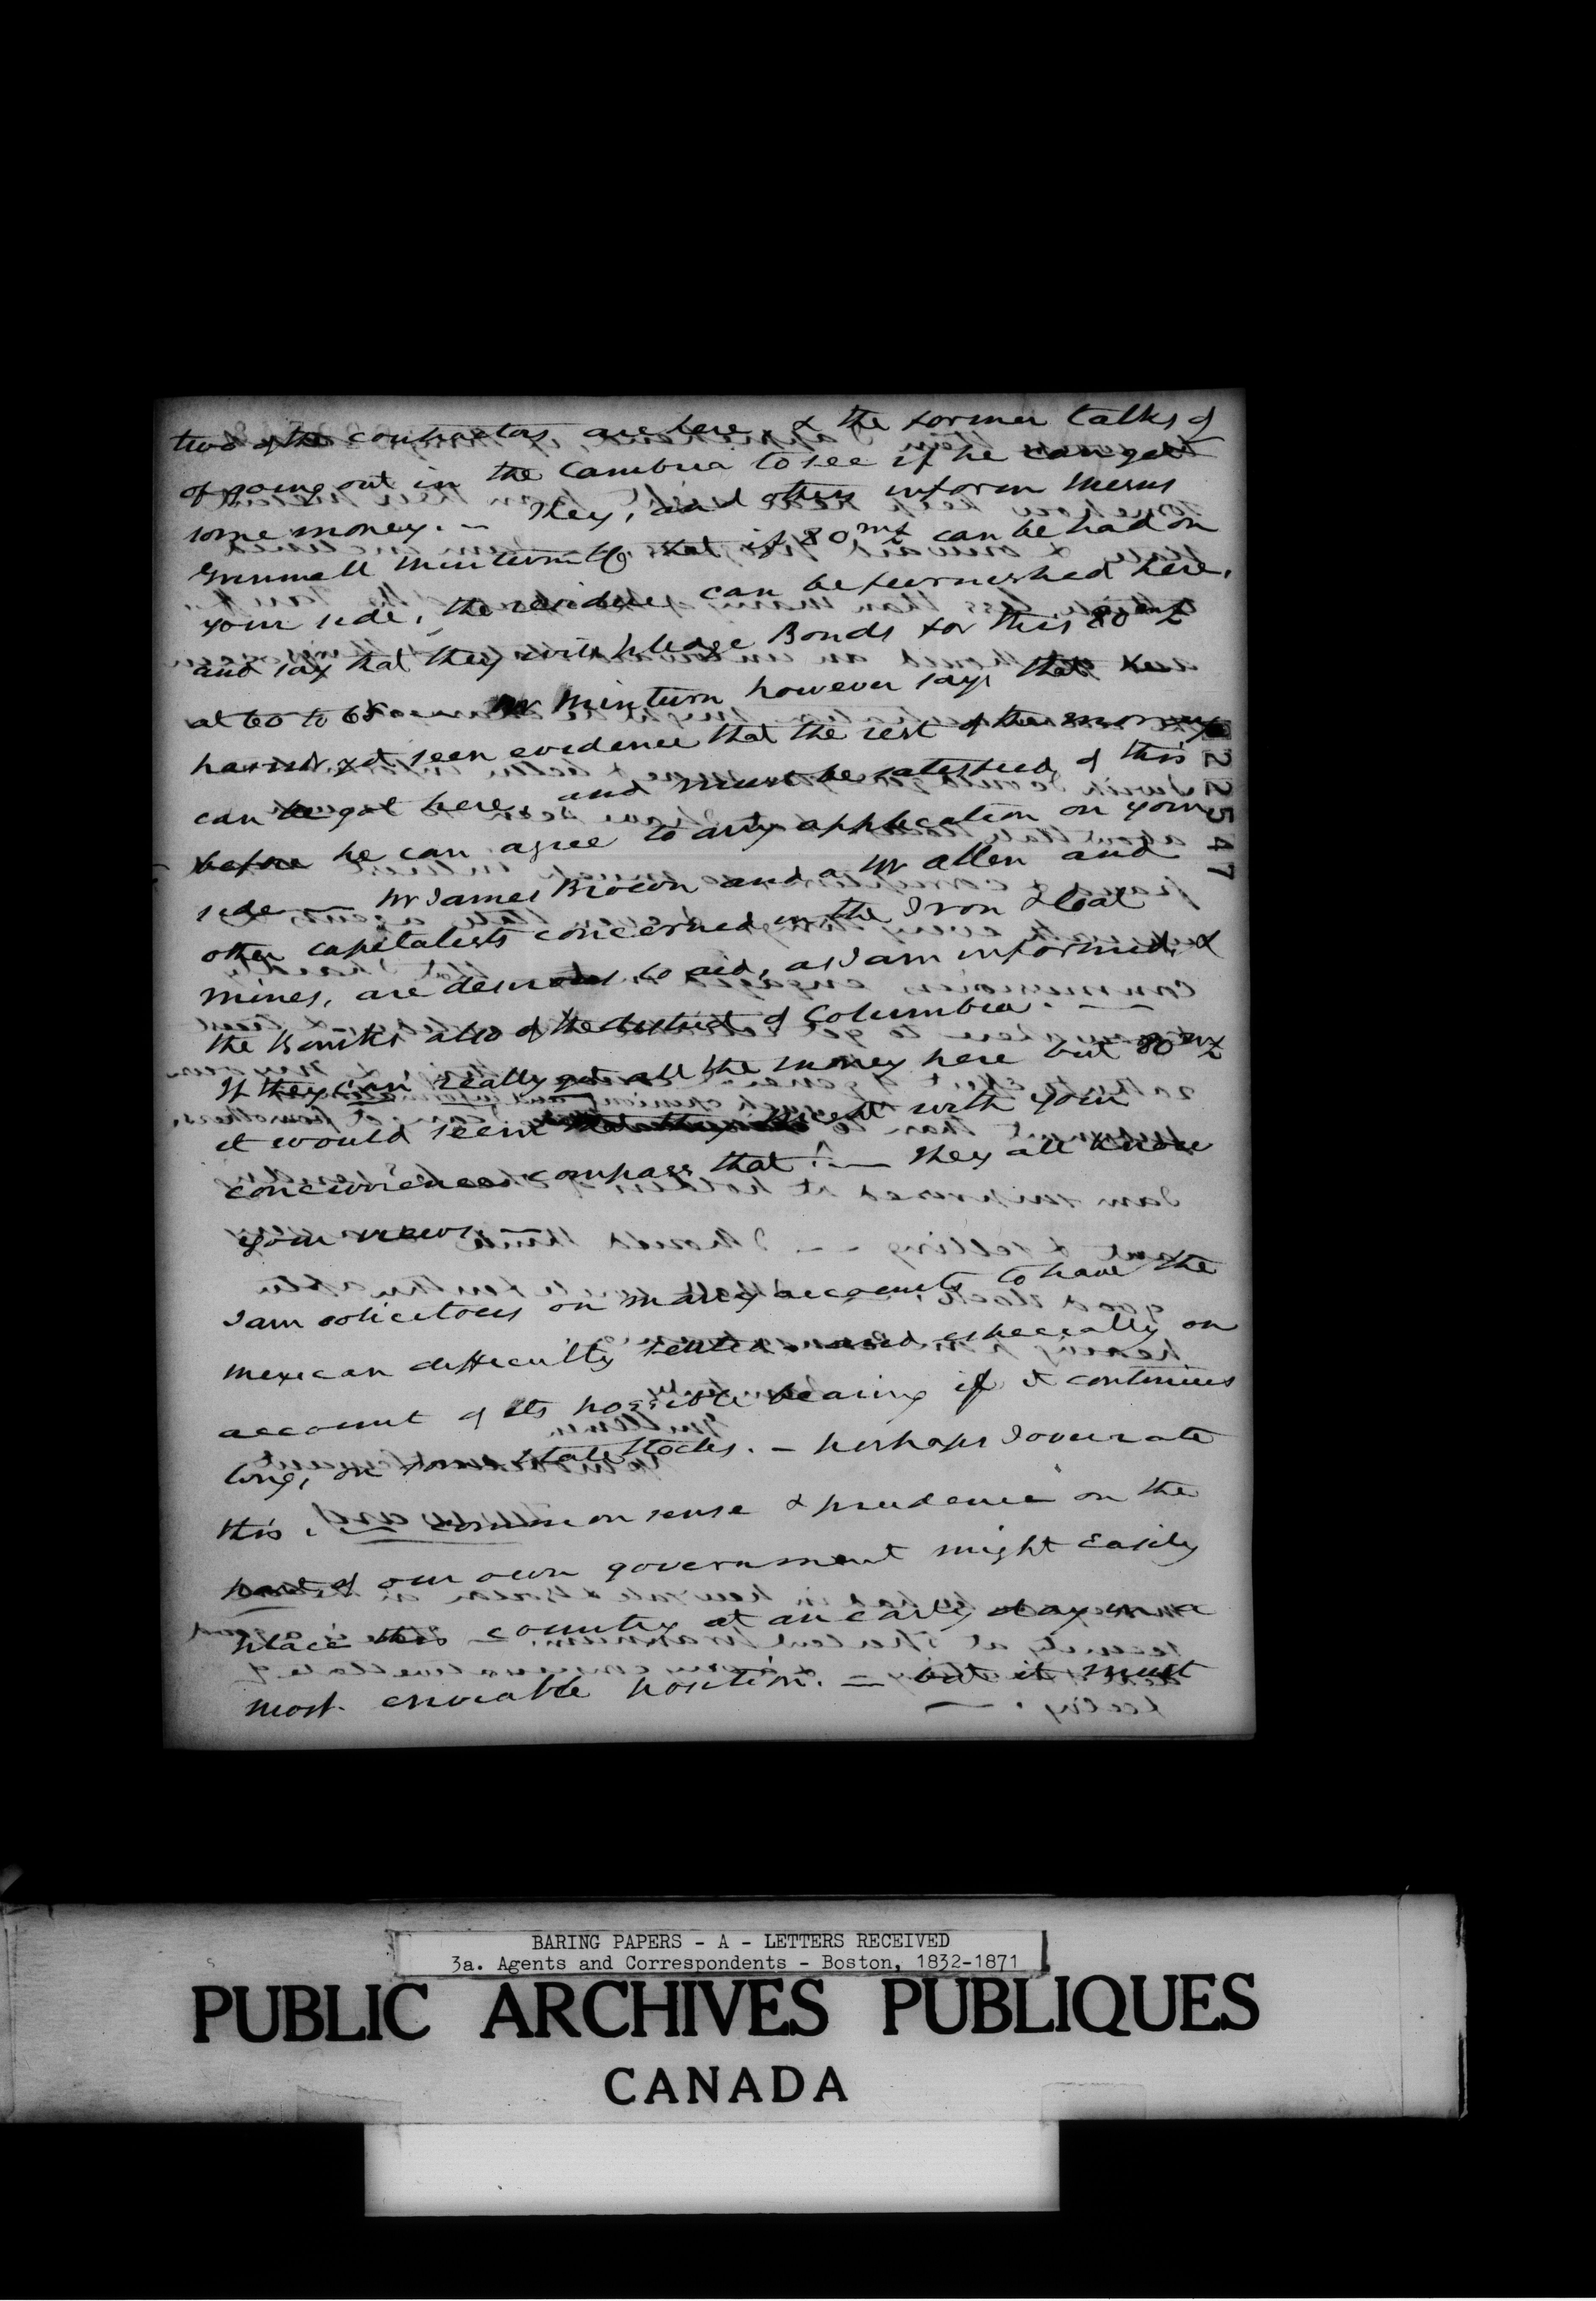 two of the contractors are here, & the former talks of
of going out in the Cambria to see if he can get
some money. — They, and others inform Messrs
Grinnell Minturn & Co that if 80 m£ can be had on
your side, the residue can be furnished here,
and say that they will pledge Bonds for this 80 m£
at 60 to 65 Mr Minturn however says that he
has not yet seen evidence that the rest of the money
can be got here, and must be satisfied of this
before he can agree to any application on your
side — Mr James Brown and a Mr Allen and
other capitalists concerned in the Iron & Coal
mines, are desirous to aid, as I am informed, &
the Banks also of the district of Columbia. —
If they can really get all the money here but 80 m£
it would seem with your
concurrence compass that. — They all know
your views —
I am solicitous on many accounts to have the
Mexican difficulty settled and especially on
account of its possible bearing if it continues
long, on some State Stocks. — perhaps I overrate
this. — common sense & prudence on the
part of our own government might easily
place this country at an early day in a
most enviable position. — but it must
BARING PAPERS - A - LETTERS RECEIVED
3a. Agents and Correspondents - Boston, 1832-1871
PUBLIC ARCHIVES PUBLIQUES
CANADA